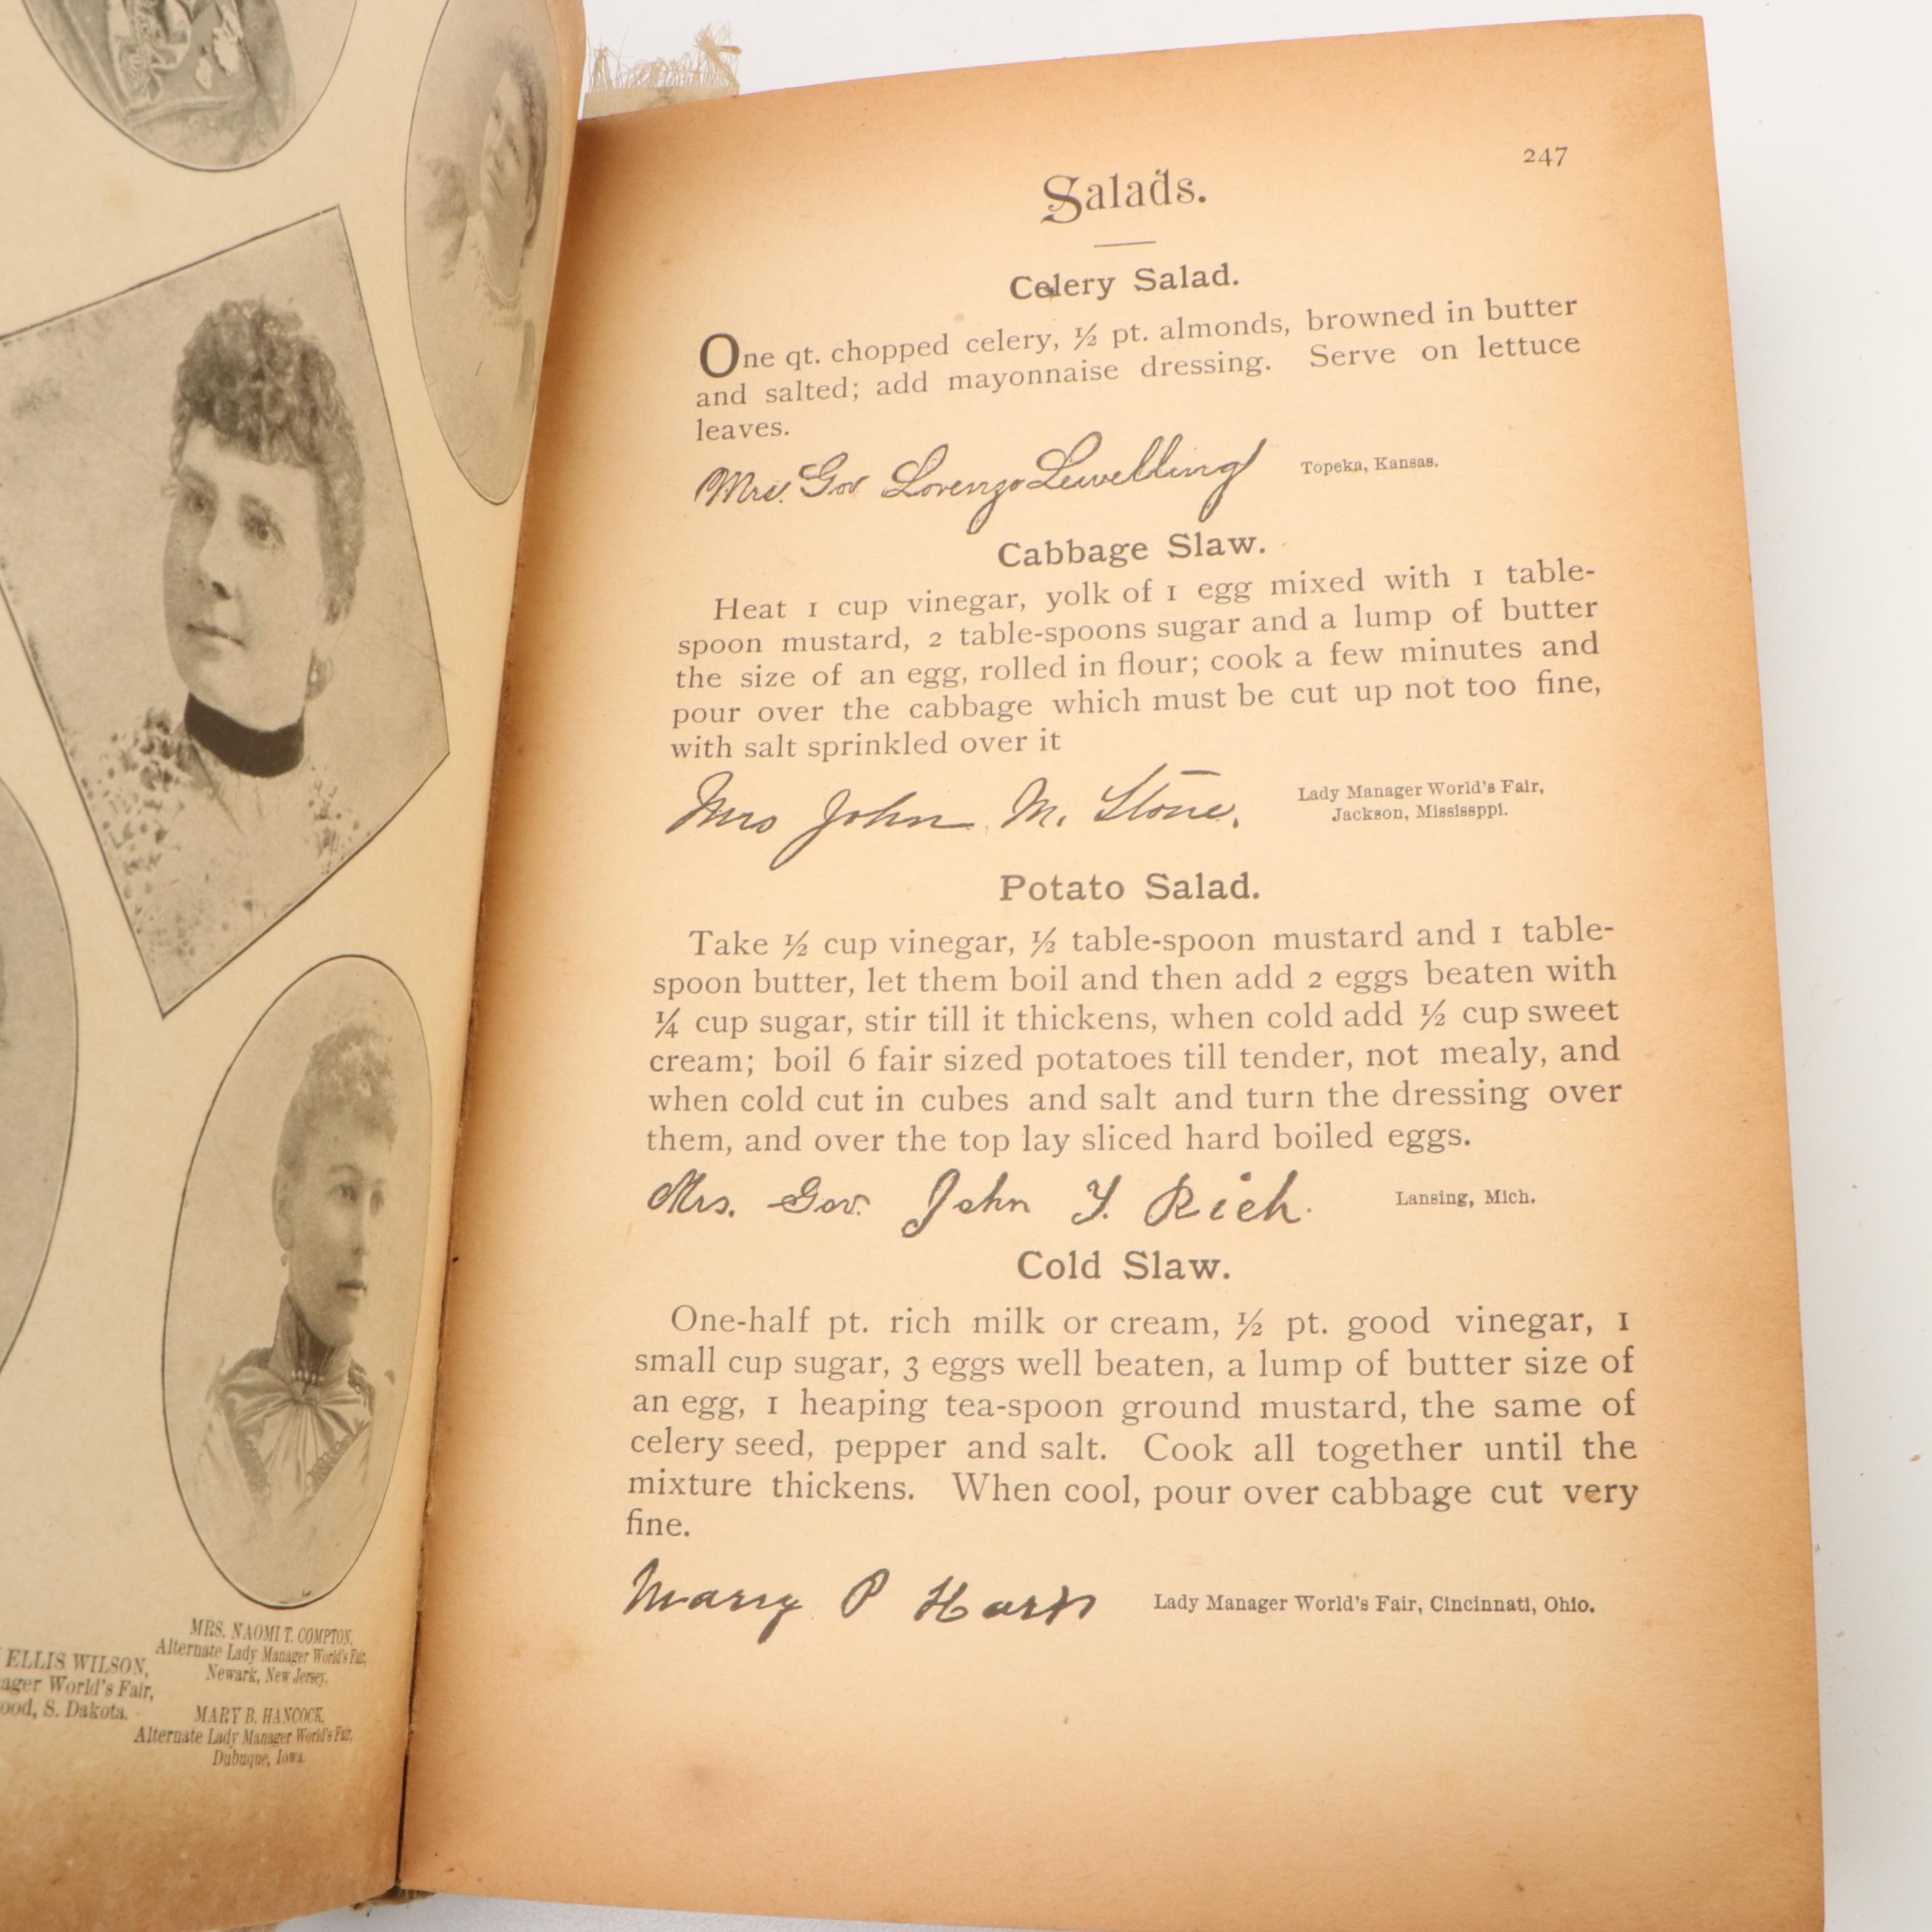 ELLIS WILSON,
World's Fair,
S. Dakota.
MRS. NAOMI T. COMPTON,
Alternate Lady Manager World's Fair,
Newark, New Jersey.
MARY B. HANCOCK,
Alternate Lady Manager World's Fair,
Dubuque, Iowa.
247
Salads.
Celery Salad.
One qt. chopped celery, ½ pt. almonds, browned in butter
and salted; add mayonnaise dressing. Serve on lettuce
leaves.
Mrs. Gov Lorenzo Lewelling Topeka, Kansas.
Cabbage Slaw.
Heat 1 cup vinegar, yolk of 1 egg mixed with 1 table-
spoon mustard, 2 table-spoons sugar and a lump of butter
the size of an egg, rolled in flour; cook a few minutes and
pour over the cabbage which must be cut up not too fine,
with salt sprinkled over it
Mrs John M. Stone. Lady Manager World's Fair,
Jackson, Mississppi.
Potato Salad.
Take ½ cup vinegar, ½ table-spoon mustard and 1 table-
spoon butter, let them boil and then add 2 eggs beaten with
¼ cup sugar, stir till it thickens, when cold add ½ cup sweet
cream; boil 6 fair sized potatoes till tender, not mealy, and
when cold cut in cubes and salt and turn the dressing over
them, and over the top lay sliced hard boiled eggs.
Mrs. Gov. John T. Rich. Lansing, Mich.
Cold Slaw.
One-half pt. rich milk or cream, ½ pt. good vinegar, 1
small cup sugar, 3 eggs well beaten, a lump of butter size of
an egg, 1 heaping tea-spoon ground mustard, the same of
celery seed, pepper and salt. Cook all together until the
mixture thickens. When cool, pour over cabbage cut very
fine.
Mary P Hart Lady Manager World's Fair, Cincinnati, Ohio.